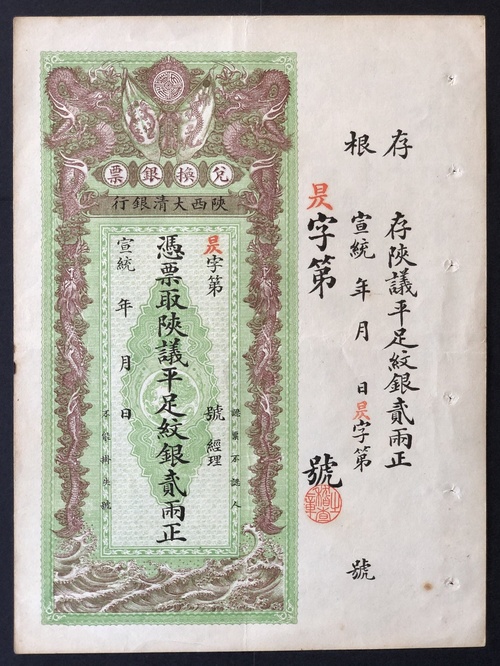 兌換銀票
陝西大清銀行
昃字第 號 經理
憑票取陝議平足紋銀貳兩正
宣統 年 月 日
認票不認人
不能掛失號
存根
存陝議平足紋銀貳兩正
宣統 年 月 日 昃字第 號
昃字第 號